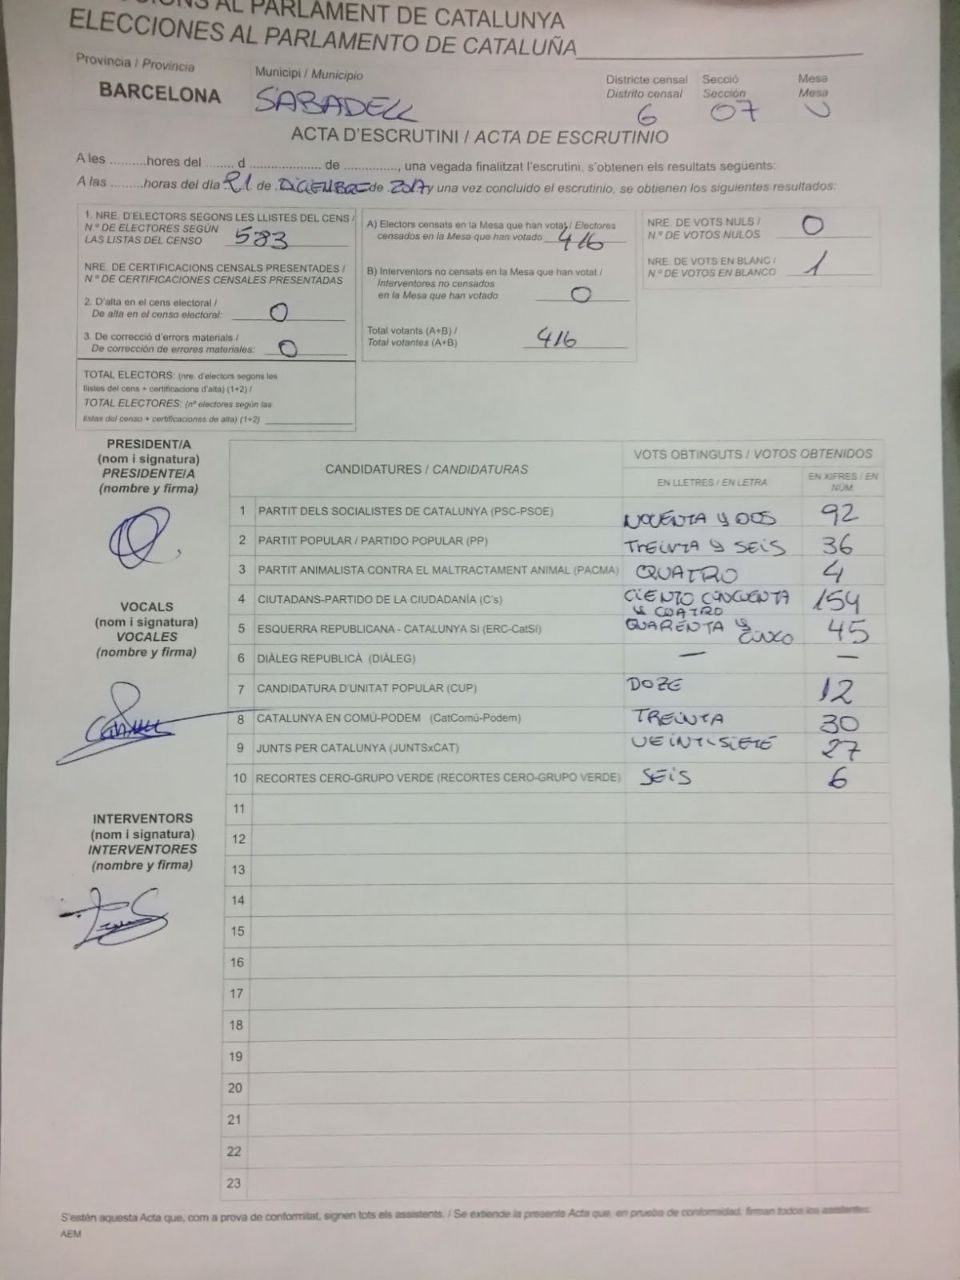 AL PARLAMENT DE CATALUNYA
ELECCIONES AL PARLAMENTO DE CATALUÑA
Província / Provincia
BARCELONA
Municipi / Municipio
SABADELL
Districte censal
Distrito censal
6
Secció
Sección
07
Mesa
Mesa
U
ACTA D'ESCRUTINI / ACTA DE ESCRUTINIO
A les ..........hores del ........ d .................... de ..............., una vegada finalitzat l'escrutini, s'obtenen els resultats següents:
A las .........horas del día 21 de DICIEMBRE de 2017 y una vez concluido el escrutinio, se obtienen los siguientes resultados:
1. NRE. D'ELECTORS SEGONS LES LLISTES DEL CENS /
N.º DE ELECTORES SEGÚN
LAS LISTAS DEL CENSO 583
NRE. DE CERTIFICACIONS CENSALS PRESENTADES /
N.º DE CERTIFICACIONES CENSALES PRESENTADAS
2. D'alta en el cens electoral /
De alta en el censo electoral: 0
3. De correcció d'errors materials /
De corrección de errores materiales: 0
TOTAL ELECTORS: (nre. d'electors segons les
llistes del cens + certificacions d'alta) (1+2) /
TOTAL ELECTORES: (nº electores según las
listas del censo + certificaciones de alta) (1+2)
A) Electors censats en la Mesa que han votat / Electores
censados en la Mesa que han votado 416
B) Interventors no censats en la Mesa que han votat /
Interventores no censados
en la Mesa que han votado 0
Total votants (A+B) /
Total votantes (A+B) 416
NRE. DE VOTS NULS /
N.º DE VOTOS NULOS 0
NRE. DE VOTS EN BLANC /
N.º DE VOTOS EN BLANCO 1
PRESIDENT/A
(nom i signatura)
PRESIDENTE/A
(nombre y firma)
VOCALS
(nom i signatura)
VOCALES
(nombre y firma)
INTERVENTORS
(nom i signatura)
INTERVENTORES
(nombre y firma)
CANDIDATURES / CANDIDATURAS
VOTS OBTINGUTS / VOTOS OBTENIDOS
EN LLETRES / EN LETRA
EN XIFRES / EN
NÚM.
1 PARTIT DELS SOCIALISTES DE CATALUNYA (PSC-PSOE) NOVENTA y DOS 92
2 PARTIT POPULAR / PARTIDO POPULAR (PP) TREINTA y SEIS 36
3 PARTIT ANIMALISTA CONTRA EL MALTRACTAMENT ANIMAL (PACMA) QUATRO 4
4 CIUTADANS-PARTIDO DE LA CIUDADANÍA (C's) CIENTO CINCUENTA y CUATRO 154
5 ESQUERRA REPUBLICANA - CATALUNYA SÍ (ERC-CatSí) QUARENTA y CINCO 45
6 DIÀLEG REPUBLICÀ (DIÀLEG) — —
7 CANDIDATURA D'UNITAT POPULAR (CUP) DOZE 12
8 CATALUNYA EN COMÚ-PODEM (CatComú-Podem) TREINTA 30
9 JUNTS PER CATALUNYA (JUNTSxCAT) VEINTISIETE 27
10 RECORTES CERO-GRUPO VERDE (RECORTES CERO-GRUPO VERDE) SEIS 6
11
12
13
14
15
16
17
18
19
20
21
22
23
S'estén aquesta Acta que, com a prova de conformitat, signen tots els assistents. / Se extiende la presente Acta que, en prueba de conformidad, firman todos los asistentes.
AEM